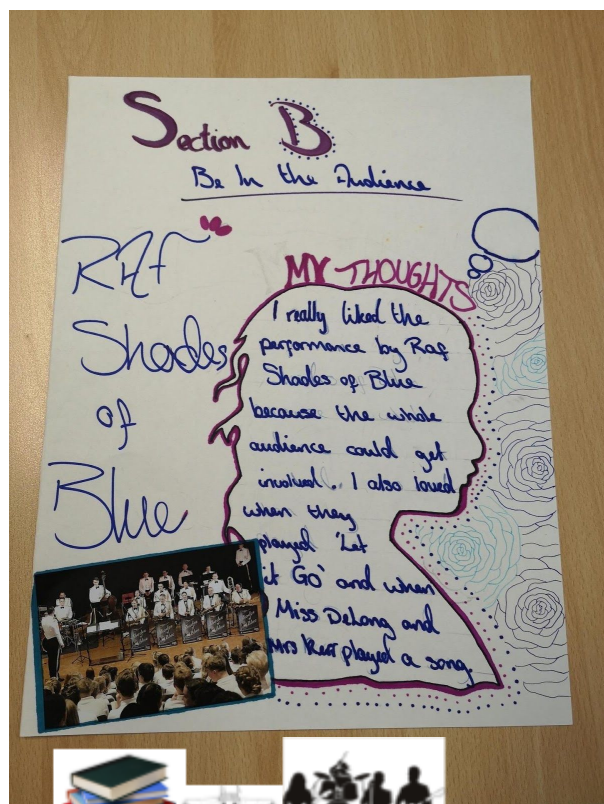 Section B
Be In the Audience
RAF
Shades
of
Blue
MY THOUGHTS
I really liked the
performance by Raf
Shades of Blue
because the whole
audience could get
involved. I also loved
when they
played 'Let
it GO' and when
Miss DeLong and
Mrs Kerr played a song.